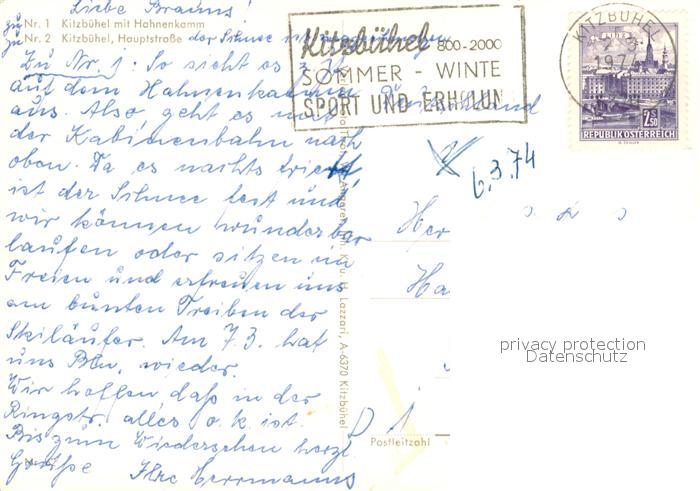 Liebe Brauns!
zu Nr. 1 Kitzbühel mit Hahnenkamm
zu Nr. 2 Kitzbühel, Hauptstraße der Schnee ist
Zu Nr. 1: So sieht es z. Zt.
auf dem Hahnenkamm
aus. Also, geht es mit
der Kabinenbahn nach
oben. Da es nachts friert,
ist der Schnee fest und
wir können wunderbar
laufen oder sitzen im
Freien und erfreuen uns
am bunten Treiben der
Skiläufer. Am 7.3. hat
uns Bln. wieder.
Wir hoffen daß in der
Ringstr. alles o.k. ist.
Bis zum Wiedersehen herzl.
Grüße Ihre Herrmanns
Kitzbühel 800-2000
SOMMER - WINTE
SPORT UND ERHOLUN
KITZBÜHEL
REPUBLIK ÖSTERREICH
2.50
6.3.74
H. Lazzari, A-6370 Kitzbühel
Her
Ha
D 1
Postleitzahl
privacy protection
Datenschutz